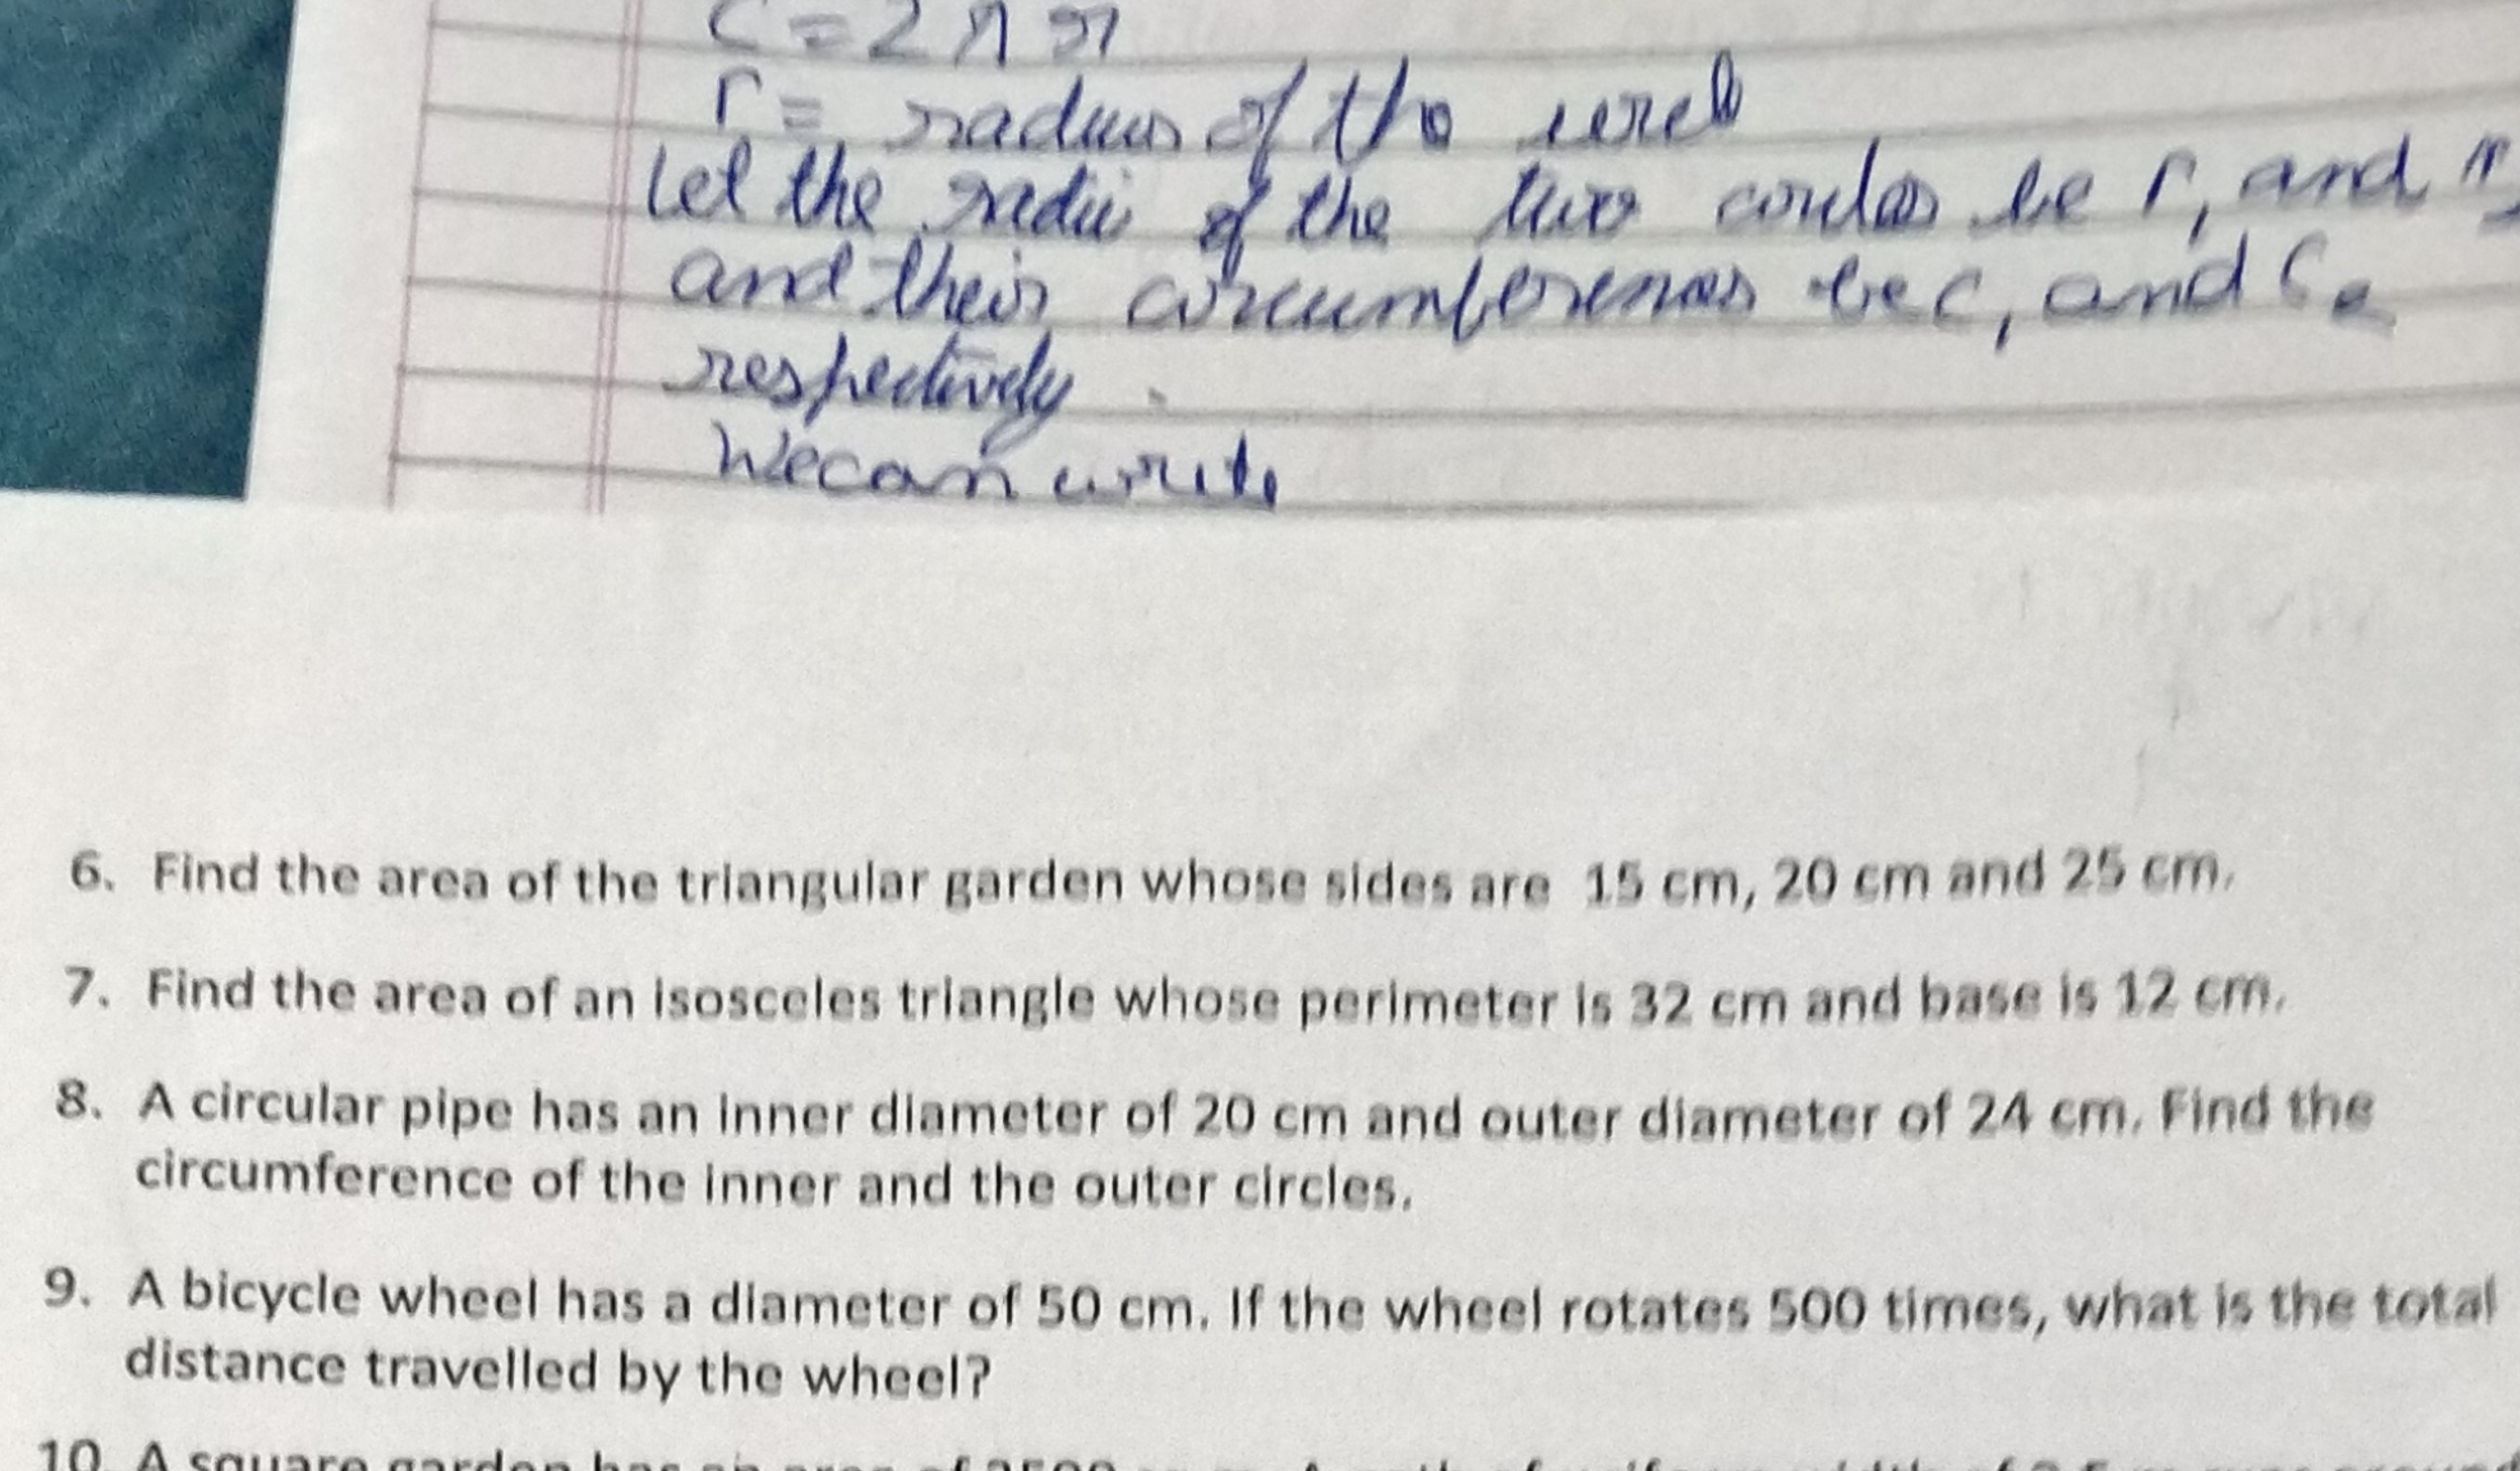 C = 2πr
r = radius of the
Let the radii of the two circles be r₁ and r₂
and their circumferences be C₁ and C₂
respectively.
We can write
6. Find the area of the triangular garden whose sides are 15 cm, 20 cm and 25 cm.
7. Find the area of an isosceles triangle whose perimeter is 32 cm and base is 12 cm.
8. A circular pipe has an inner diameter of 20 cm and outer diameter of 24 cm. Find the
circumference of the inner and the outer circles.
9. A bicycle wheel has a diameter of 50 cm. If the wheel rotates 500 times, what is the total
distance travelled by the wheel?
10. A square garden has an area of